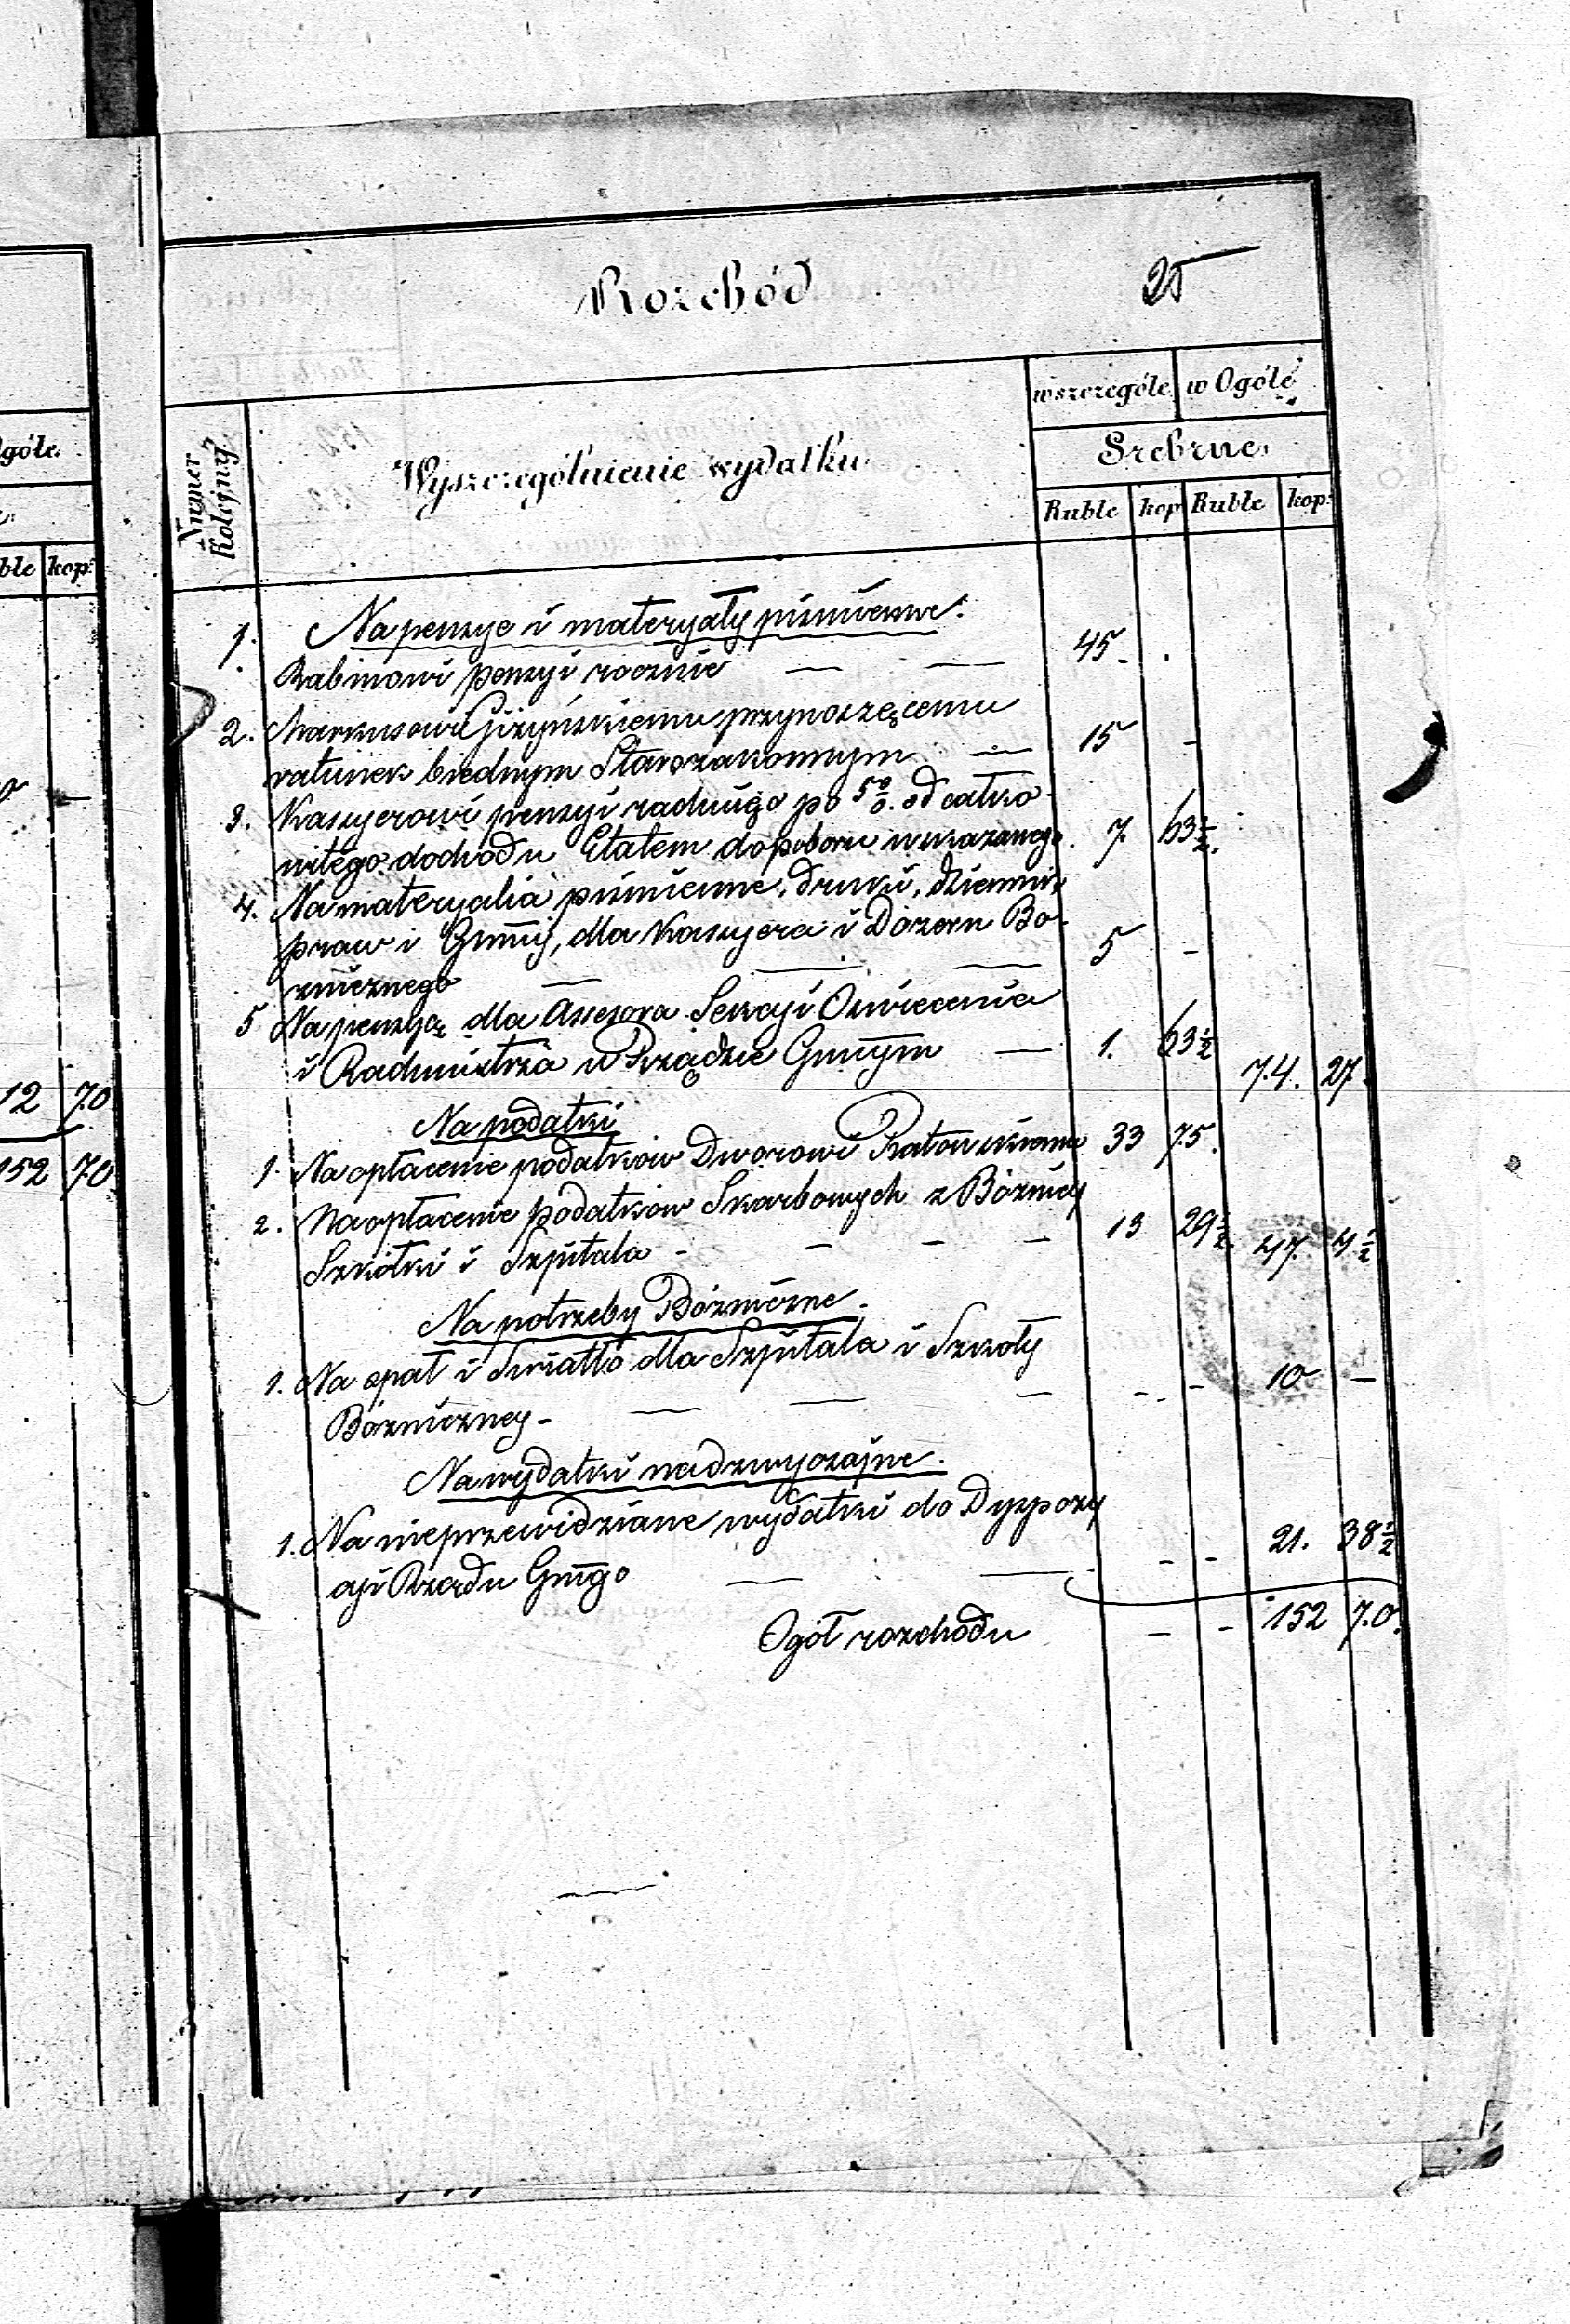 Rozchód 25
gółe.
Numer Kolejny
Wyszczególnienie wydatku
wszczególe w Ogóle
Srebrne.
Ruble kop Ruble kop:
ble kop:
Na pensye i materyały piśmienne.
1. Rabinowi pensyi rocznie — — 45. .
2. Markusowi Giżyńskiemu przynoszęcemu
ratunek biednym Starozakonnym — 15 -
3. Kassyerowi pensyi radnego po 5%. od całko-
witego dochodu Etatem do poboru wskazanego. 7. 63½.
4. Na materyalia piśmienne, druki, dziennik
praw i Gminy, dla Kassyera i Dozoru Bo-
zniczneg​o — — — 5 -
5 Na pensyą dla Assesora Sekcyi Oswiecenia
i Radmistrza w Rządzie Gmnym — 1. 63½ 74. 27.
12 70.
152 70
Na podatki
1. Na opłacenie podatków Dworowi 33 75.
2. Na opłacenie podatkow Skarbowych z Bóżnicy
Szkółki i Szpitala - - - - 13 29½. 47. 4½
Na potrzeby Bóżniczne.
1. Na opał i Swiatło dla Szpitala i Szkoły
Bóżniczney - — — — - - 10 —
Na wydatki nadzwyczajne.
1. Na nieprzewidziane wydatki do Dyspozy
cyi Rządu Gmgo — — - - 21. 38½
Ogół rozchodu — - 152 70.